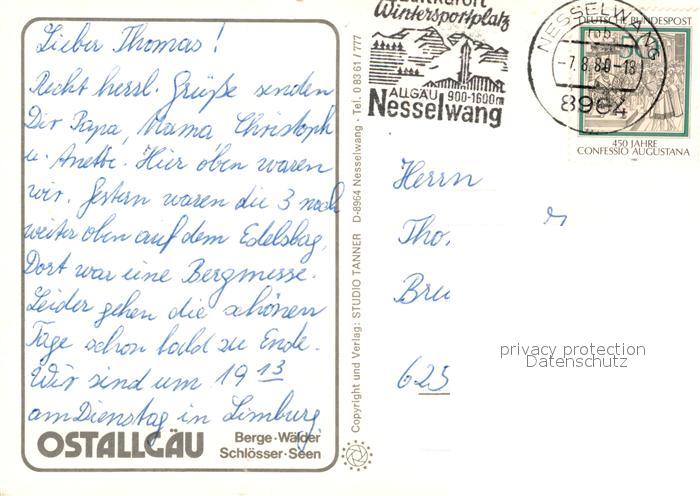 Lieber Thomas!
Recht herzl. Grüße senden
Dir Papa, Mama, Christoph
u. Anette. Hier oben waren
wir. Gestern waren die 3 noch
weiter oben auf dem Edelsbg.
Dort war eine Bergmesse.
Leider gehen die schönen
Tage schon bald zu Ende.
Wir sind um 19 13
am Dienstag in Limburg.
OSTALLGÄU
Berge·Wälder
Schlösser·Seen
Copyright und Verlag: STUDIO TANNER D-8964 Nesselwang · Tel. 0 83 61 / 777
Wintersportplatz
ALLGÄU 900-1600m
Nesselwang
NESSELWANG
-7.8.80-18
8964
DEUTSCHE BUNDESPOST
50
450 JAHRE
CONFESSIO AUGUSTANA
Herrn
Tho
Bre
625
privacy protection
Datenschutz